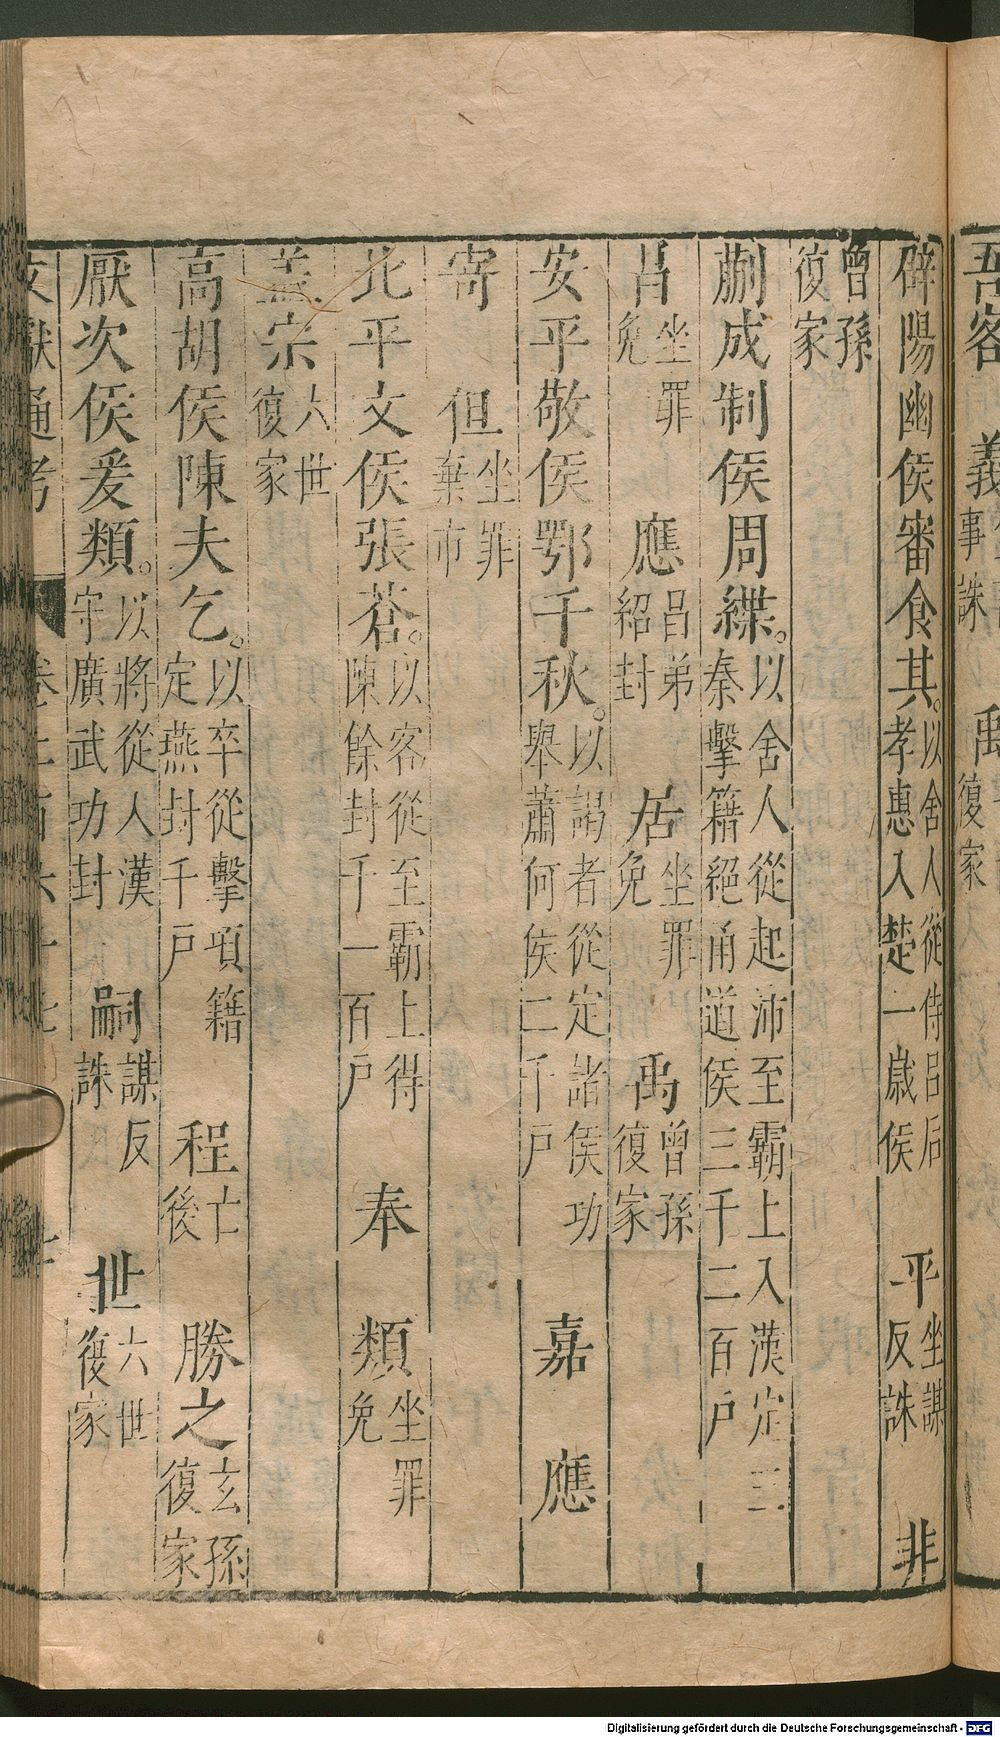 吾客　義事誅　禹復家
辟陽幽侯審食其。以舍人從侍呂后孝惠入楚一歲侯　平坐謀反誅　非
曾孫復家
蒯成制侯周緤。以舍人從起沛至霸上入漢定三秦擊籍絕甬道侯三千二百戶
昌坐罪免　應昌弟紹封　居坐罪免　禹曾孫復家
安平敬侯鄂千秋。以謁者從定諸侯功舉蕭何侯二千戶　嘉　應
寄　但坐罪棄市
北平文侯張蒼。以客從至霸上得陳餘封千一百戶　奉　類坐罪免
盖宗六世復家
高胡侯陳夫乞。以卒從擊項籍定燕封千戶　程亡後　勝之玄孫復家
厭次侯爰類。以將從入漢守廣武功封　嗣謀反誅　世六世復家
文獻通考　卷二百六十七　七
Digitalisierung gefördert durch die Deutsche Forschungsgemeinschaft - DFG